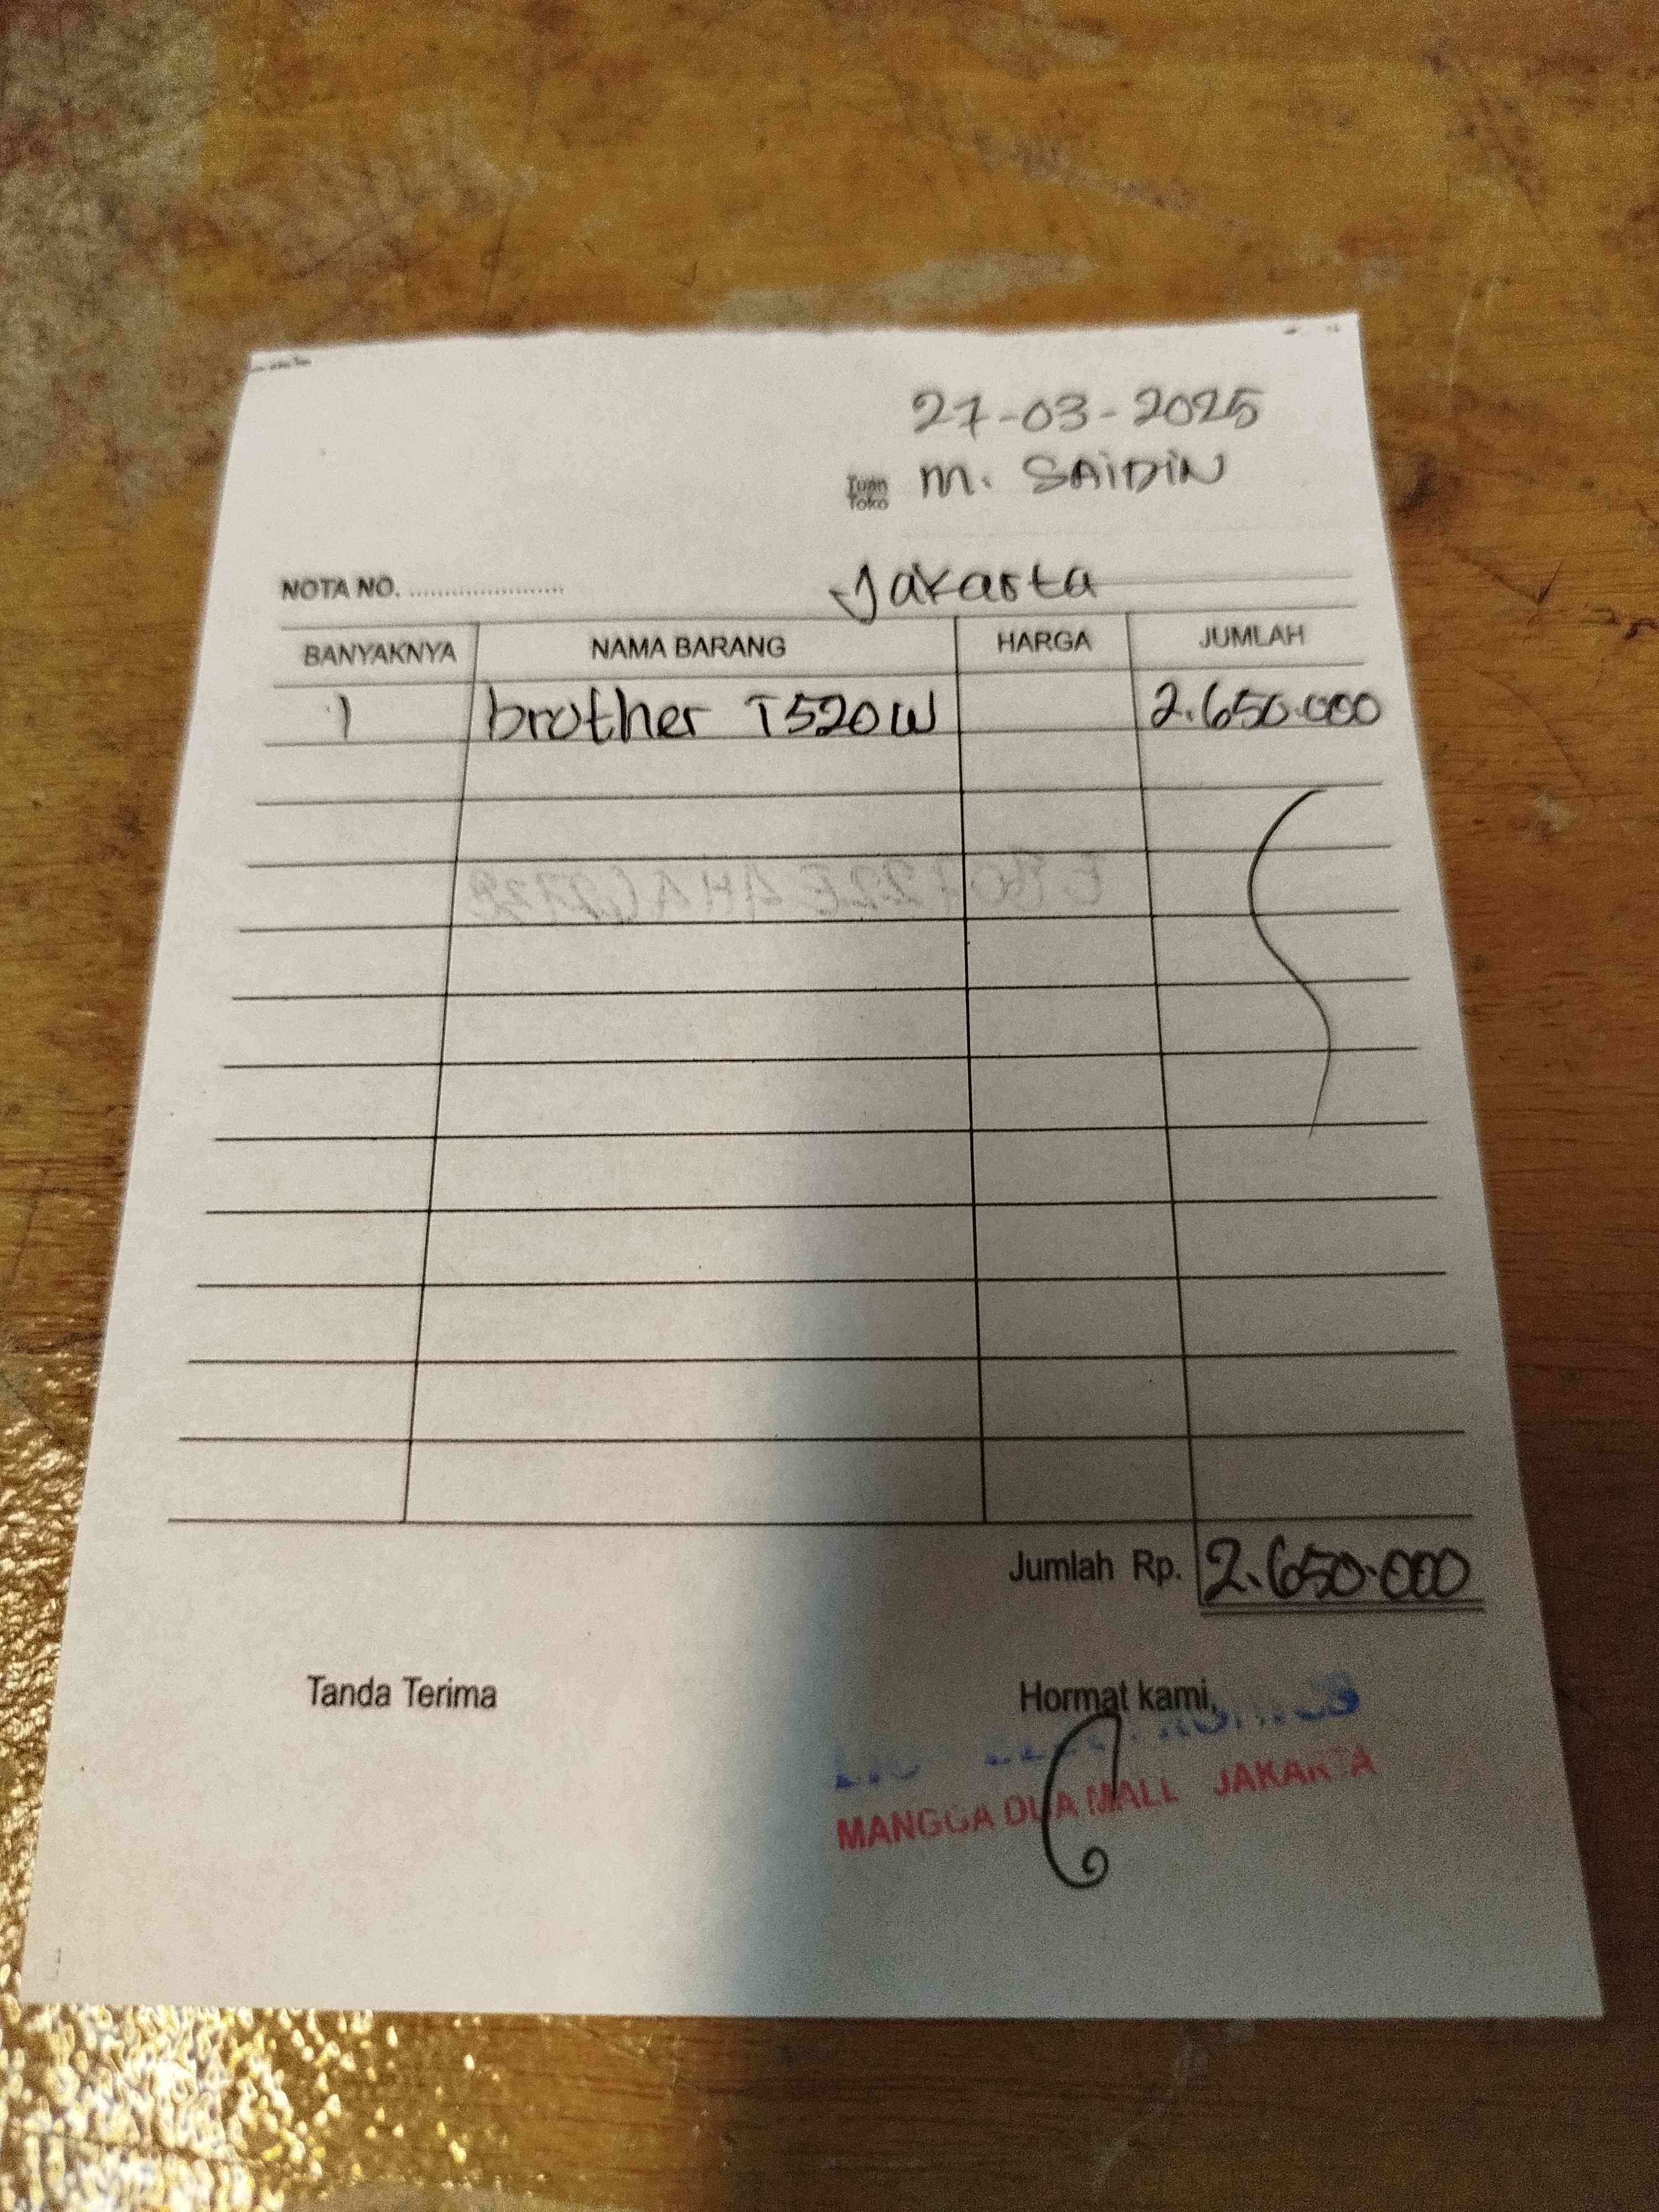 27-03-2025
Tuan
Toko
M. SAIDIN
NOTA NO. ........................
Jakarta
BANYAKNYA NAMA BARANG HARGA JUMLAH
1 brother T520W 2.650.000
Jumlah Rp. 2.650.000
Tanda Terima Hormat kami,
MANGGA DUA MALL JAKARTA